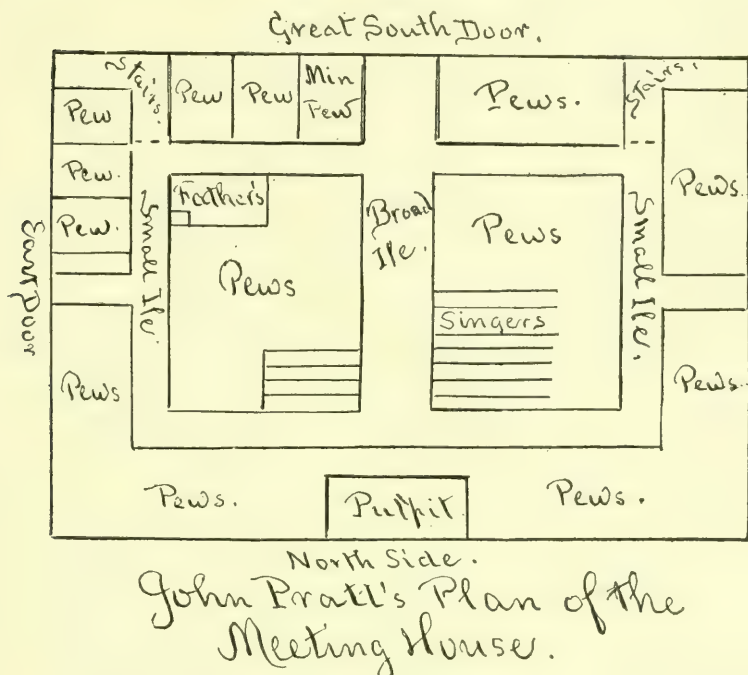 Great South Door.
Stairs.
Pew
Pew
Min
Pew
Pews.
Stairs.
Pew
Pew.
Pew.
East Door
Small Ile.
Father's
Pews
Broad
Ile.
Pews
Singers
Small Ile.
Pews
Pews.
Pews
Pews.
Pulpit
Pews.
North Side.
John Pratt's Plan of the
Meeting House.